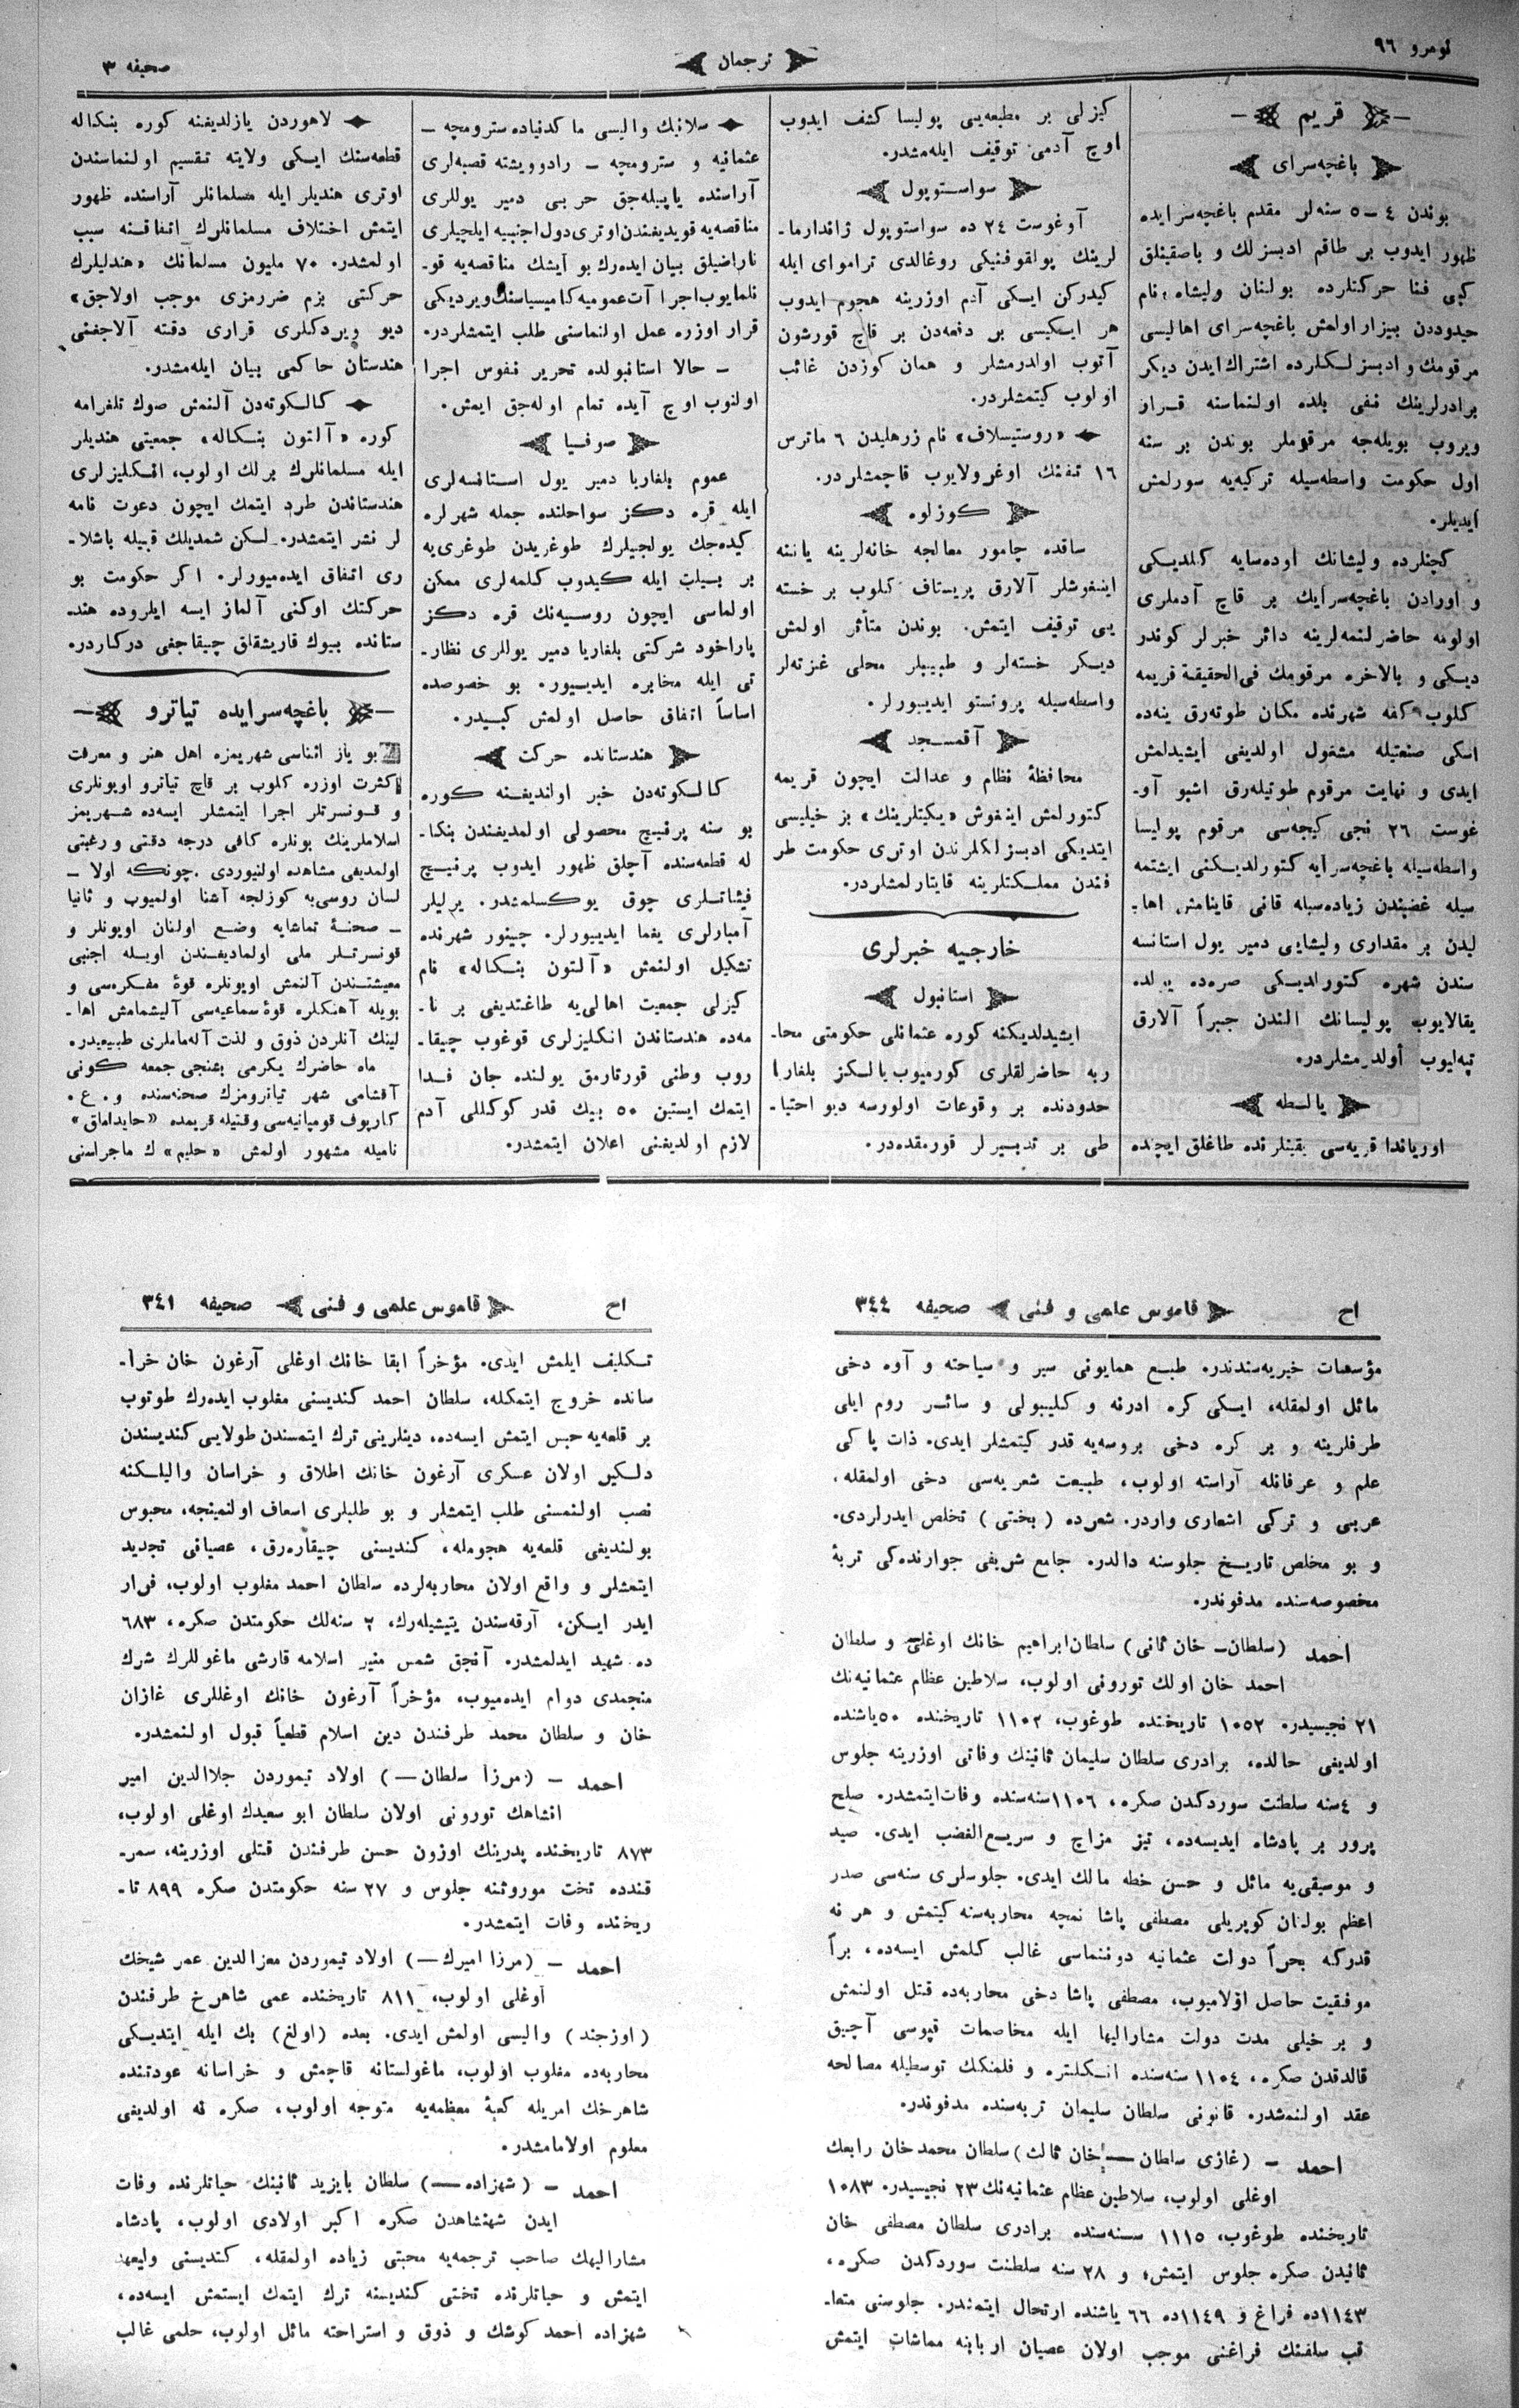 نومرو ٩٦
ترجمان
صحيفه ٣
قريم
باغچه‌سراى
بوندن ٤ـ٥ سنه‌لر مقدم باغچه‌سرايده
ظهور ايدوب بر طاقم ادبسزلك و باصقينلق
كبى فنا حركتلرده بولنان وليشاه نام
حيدوددن بيزار اولمش باغچه‌سراى اهاليسى
مرقومك و ادبسزلكلرده اشتراك ايدن ديكر
برادرلرينك نفى بلده اولنماسنه قرار
ويروب بويله‌جه مرقوملر بوندن بر سنه
اول حكومت واسطه‌سيله تركيه‌يه سورلمش
ايديلر.
كچنلرده وليشانك اوده‌سايه كلديكى
و اورادن باغچه‌سرايك بر قاچ آدملرى
اولومه حاضرلنمه‌لرينه دائر خبرلر كوندر
ديكى و بالاخره مرقومك فى‌الحقيقة قريمه
كلوب كفه شهرنده مكان طوته‌رق ينه‌ده
اسكى صنعتيله مشغول اولديغى ايشيدلمش
ايدى و نهايت مرقوم طوتيله‌رق اشبو آو‌ـ
غوست ٢٦ نجى كيجه‌سى مرقوم پوليسا
واسطه‌سيله باغچه‌سرايه كتورلديكنى ايشتمه
سيله غضبندن زياده‌سيله قانى قاينامش اها‌ـ
ليدن بر مقدارى وليشايى دمير يول استانسه
سندن شهره كتورلديكى صره‌ده يولده
يقالايوب پوليسانك الندن جبراً آلارق
تپه‌ليوب أولدرمشلردر.
يالطه
اورياندا قريه‌سى يقينلرنده طاغلق ايچنده
كيزلى بر مطبعه‌يى پوليسا كشف ايدوب
اوچ آدمى توقيف ايله‌مشدر.
سواستوپول
آوغوست ٢٤ ده سواستوپول ژاندارما‌ـ
لرينك پولقوفنيكى روغالدى تراموای ايله
كيدركن ايكى آدم اوزرينه هجوم ايدوب
هر ايكيسى بر دفعه‌دن بر قاچ قورشون
آتوب اولدرمشلر و همان كوزدن غائب
اولوب كيتمشلردر.
«روستيسلاف» نام زرهليدن ٦ ماترس
١٦ تفنك اوغرولايوب قاچمشلردر.
كوزلوه
ساقده چامور معالجه خانه‌لرينه ياننه
اينغوشلر آلارق پريستاف كلوب بر خسته
يى توقيف ايتمش. بوندن متأثر اولمش
ديكر خسته‌لر و طبيبلر محلى غزته‌لر
واسطه‌سيله پروتستو ايدييورلر.
آقمسجد
محافظۀ نظام و عدالت ايچون قريمه
كتورلمش اينغوش «يكيتلرينك» بز خيليسى
ايتديكى ادبسزلكلرندن اوترى حكومت طر
فندن مملكتلرينه قايتارلمشلردر.
خارجيه خبرلرى
استانبول
ايشيدلديكنه كوره عثمانلى حكومتى محا‌ـ
ربه حاضرلقلرى كورميوب يالكز بلغارا
حدودنده بر وقوعات اولورسه ديو احتيا‌ـ
طى بر تدبيرلر قورمقده‌در.
سلانيك واليسى ماكدنياده سترومچه ـ
عثمانيه و سترومچه ـ رادوويشته قصبه‌لرى
آراسنده ياپيله‌جق حربى دمير يوللرى
مناقصه‌يه قويديغندن اوترى دول اجنبيه ايلچيلرى
ناراضيلق بيان ايده‌رك بو آيشك مناقصه‌يه قو‌ـ
نلمايوب اجراآت عموميه كاميسياسنك ويرديكى
قرار اوزره عمل اولنماسنى طلب ايتمشلردر.
ـ حالا استانبولده تحرير نفوس اجرا
اولنوب اوچ آيده تمام اوله‌جق ايمش.
صوفيا
عموم بلغاريا دمير يول استانسه‌لرى
ايله قره دكز سواحلنده جمله شهرلره
كيده‌جك يولجيلرك طوغريدن طوغرى‌يه
بر بيلت ايله كيدوب كلمه‌لرى ممكن
اولماسى ايچون روسيه‌نك قره دكز
پاراخود شركتى بلغاريا دمير يوللرى نظار‌ـ
تى ايله مخابره ايدييور. بو خصوصده
اساساً اتفاق حاصل اولمش كبيدر.
هندستانده حركت
كالكوته‌دن خبر اولنديغنه كوره
بو سنه پرنج محصولى اولمديغندن بنكا‌ـ
له قطعه‌سنده آچلق ظهور ايدوب پرنج
فيئاتلرى چوق يوكسلمشدر. يرليلر
آمبارلرى يغما ايدييورلر. چيتور شهرنده
تشكيل اولنمش «آلتون بنكاله» نام
كيزلى جمعيت اهالى‌يه طاغتديغى بر نا‌ـ
مه‌ده هندستاندن انكليزلرى قوغوب چيقا‌ـ
روب وطنى قورتارمق يولنده جان فدا
ايتمك ايستين ٥٠ بيك قدر كوكللى آدم
لازم اولديغنى اعلان ايتمشدر.
لاهوردن يازلديغنه كوره بنكاله
قطعه‌سنك ايكى ولايته تقسيم اولنماسندن
اوترى هنديلر ايله مسلمانلر آراسنده ظهور
ايتمش اختلاف مسلمانلرك اتفاقنه سبب
اولمشدر. ٧٠ مليون مسلمانك «هنديلرك
حركتى بزم ضررمزى موجب اولاجق»
ديو ويردكلرى قرارى دقته آلاجغنى
هندستان حاكمى بيان ايله‌مشدر.
كالكوته‌دن آلنمش صوك تلغرامه
كوره «آلتون بنكاله» جمعيتى هنديلر
ايله مسلمانلرك برلك اولوب، انكليزلرى
هندستاندن طرد ايتمك ايچون دعوت نامه
لر نشر ايتمشدر. لكن شمديلك قبيله باشلا‌ـ
رى اتفاق ايده‌ميورلر. اكر حكومت بو
حركتك اوكنى آلماز ايسه ايلروده هند‌ـ
ستانده بيوك قاريشقلق چيقاجغى دركاردر.
باغچه‌سرايده تياترو
بو ياز اثناسى شهريمزه اهل هنر و معرفت
كثرت اوزره كلوب بر قاچ تياترو اويونلرى
و قونسرتلر اجرا ايتمشلر ايسه‌ده شهريمز
اسلاملرينك بونلره كافى درجه دقتى و رغبتى
اولمديغى مشاهده اولنيوردى. چونكه اولا ـ
لسان روسى‌يه كوزلجه آشنا اولميوب و ثانيا
ـ صحنۀ تماشايه وضع اولنان اويونلر و
قونسرتلر ملى اولماديغندن اويله اجنبى
معيشتندن آلنمش اويونلره قوۀ مفكره‌سى و
بويله آهنكلره قوۀ سماعيه‌سى آليشمامش اها‌ـ
لينك آنلردن ذوق و لذت آله‌ماملرى طبيعيدر.
ماه حاضرك يكرمى بشنجى جمعه كونى
آقشامى شهر تياترومزك صحنه‌سنده و. ع.
كارپوف قومپانيه‌سى وقتيله قريمده «حايداماق»
ناميله مشهور اولمش «حليم» ك ماجراسنى
اح
قاموس علمى و فنى
صحيفه ٣٤٤
مؤسسات خيريه‌سندندر. طبع همايونى سير و سياحته و آوه دخى
مائل اولمقله، ايكى كره ادرنه و كليبولى و سائر روم ايلى
طرفلرينه و بر كره دخى بروسه‌يه قدر كيتمشلر ايدى. ذات پاكى
علم و عرفانله آراسته اولوب، طبيعت شعريه‌سى دخى اولمقله،
عربى و تركى اشعارى واردر. شعرده (بختى) تخلص ايدرلردى.
و بو مخلص تاريخ جلوسنه دالدر. جامع شريفى جوارنده‌كى تربۀ
مخصوصه‌سنده مدفوندر.
احمد (سلطان ـ خان ثانى) سلطان ابراهيم خانك اوغلى و سلطان
احمد خان اولك تورونى اولوب، سلاطين عظام عثمانيه‌نك
٢١ نجيسيدر. ١٠٥٢ تاريخنده طوغوب، ١١٠٢ تاريخنده ٥٠ ياشنده
اولديغى حالده، برادرى سلطان سليمان ثانينك وفاتى اوزرينه جلوس
و ٤ سنه سلطنت سوردكدن صكره، ١١٠٦ سنه‌سنده وفات ايتمشدر. صلح
پرور بر پادشاه ايديسه‌ده، تيز مزاج و سريع الغضب ايدى. صيد
و موسيقى‌يه مائل و حسن خطه مالك ايدى. جلوسلرى سنه‌سى صدر
اعظم بولنان كوپريلى مصطفى پاشا نمچه محاربه‌سنه كيتمش و هر نه
قدركه بحراً دولت عثمانيه دوننماسى غالب كلمش ايسه‌ده، براً
موفقيت حاصل اۉلاميوب، مصطفى پاشا دخى محاربه‌ده قتل اولنمش
و بر خيلى مدت دولت مشاراليها ايله مخاصمات قپوسى آچيق
قالدقدن صكره، ١١٠٤ سنه‌سنده انكلتره و فلمنكك توسطيله مصالحه
عقد اولنمشدر. قانونى سلطان سليمان تربه‌سنده مدفوندر.
احمد ـ (غازى سلطان ـ خان ثالث) سلطان محمد خان رابعك
اوغلى اولوب، سلاطين عظام عثمانيه‌نك ٢٣ نجيسيدر. ١٠٨٣
تاريخنده طوغوب، ١١١٥ سنه‌سنده برادرى سلطان مصطفى خان
ثانيدن صكره جلوس ايتمش؛ و ٢٨ سنه سلطنت سوردكدن صكره،
١١٤٣ده فراغ و ١١٤٩ده ٦٦ ياشنده ارتحال ايتمشدر. جلوسنى متعا‌ـ
قب سلفنك فراغنى موجب اولان عصيان اربابنه مماشات ايتمش
اح
قاموس علمى و فنى
صحيفه ٣٤١
تكليف ايلمش ايدى. مؤخراً ابقا خانك اوغلى آرغون خان خرا‌ـ
سانده خروج ايتمكله، سلطان احمد كنديسنى مغلوب ايده‌رك طوتوب
بر قلعه‌يه حبس ايتمش ايسه‌ده، دينلرينى ترك ايتمسندن طولايى كنديسندن
دلكير اولان عسكرى آرغون خانك اطلاق و خراسان واليلكنه
نصب اولنمسنى طلب ايتمشلر و بو طلبلرى اسعاف اولنمينجه، محبوس
بولنديغى قلعه‌يه هجومله، كنديسنى چيقاره‌رق، عصيانى تجديد
ايتمشلر و واقع اولان محاربه‌لرده سلطان احمد مغلوب اولوب، فرار
ايدر ايكن، آرقه‌سندن يتيشيله‌رك، ٢ سنه‌لك حكومتدن صكره، ٦٨٣
ده شهيد ايدلمشدر. آنجق شمس منير اسلامه قارشى ماغوللرك شرك
منجمدى دوام ايده‌ميوب، مؤخراً آرغون خانك اوغللرى غازان
خان و سلطان محمد طرفندن دين اسلام قطعياً قبول اولنمشدر.
احمد ـ (مرزا سلطان ـ) اولاد تيموردن جلاالدين امير
انشاهك تورونى اولان سلطان ابو سعيدك اوغلى اولوب،
٨٧٣ تاريخنده پدرينك اوزون حسن طرفندن قتلى اوزرينه، سمر‌ـ
قندده تخت موروثنه جلوس و ٢٧ سنه حكومتدن صكره ٨٩٩ تا‌ـ
ريخنده وفات ايتمشدر.
احمد ـ (مرزا اميرك ـ) اولاد تيموردن معزالدين عمر شيخك
اوغلى اولوب، ٨١١ تاريخنده عمى شاهرخ طرفندن
(اوزجند) واليسى اولمش ايدى. بعده (اولغ) بك ايله ايتديكى
محاربه‌ده مغلوب اولوب، ماغولستانه قاچمش و خراسانه عودتنده
شاهرخك امريله كعبۀ معظمه‌يه متوجه اولوب، صكره نه اولديغى
معلوم اولامامشدر.
احمد ـ (شهزاده ـ) سلطان بايزيد ثانينك حياتلرنده وفات
ايدن شهنشاهدن صكره اكبر اولادى اولوب، پادشاه
مشاراليهك صاحب ترجمه‌يه محبتى زياده اولمقله، كنديسنى وليعهد
ايتمش و حياتلرنده تختى كنديسنه ترك ايتمك ايستمش ايسه‌ده،
شهزاده احمد كوشك و ذوق و استراحته مائل اولوب، حلمى غالب